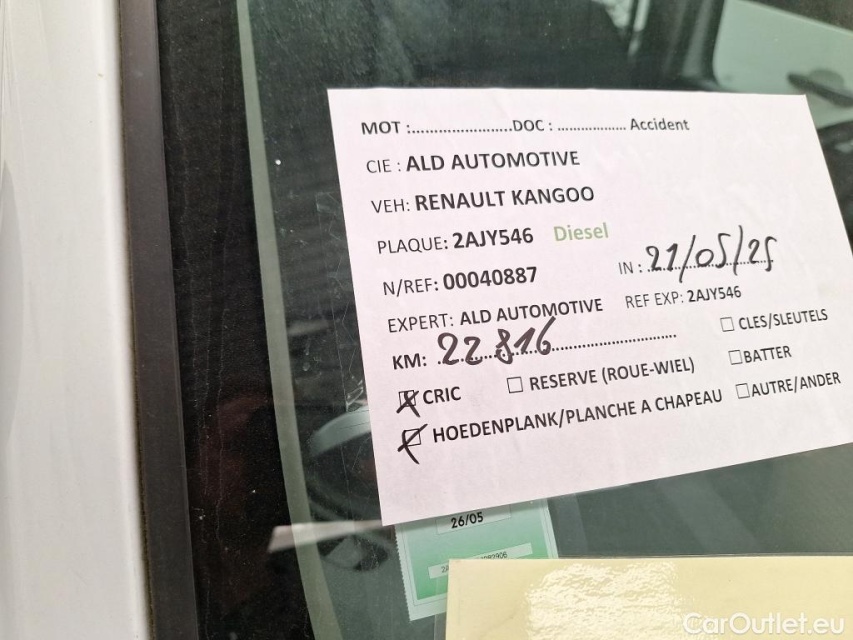 MOT :......................DOC : ................. Accident
CIE : ALD AUTOMOTIVE
VEH: RENAULT KANGOO
PLAQUE: 2AJY546 Diesel
N/REF: 00040887 IN : 21/05/25
EXPERT: ALD AUTOMOTIVE REF EXP: 2AJY546
KM: 22 816
☐ CLES/SLEUTELS
☒ CRIC ☐ RESERVE (ROUE-WIEL) ☐ BATTER
☒ HOEDENPLANK/PLANCHE A CHAPEAU ☐ AUTRE/ANDER
26/05
CarOutlet.eu